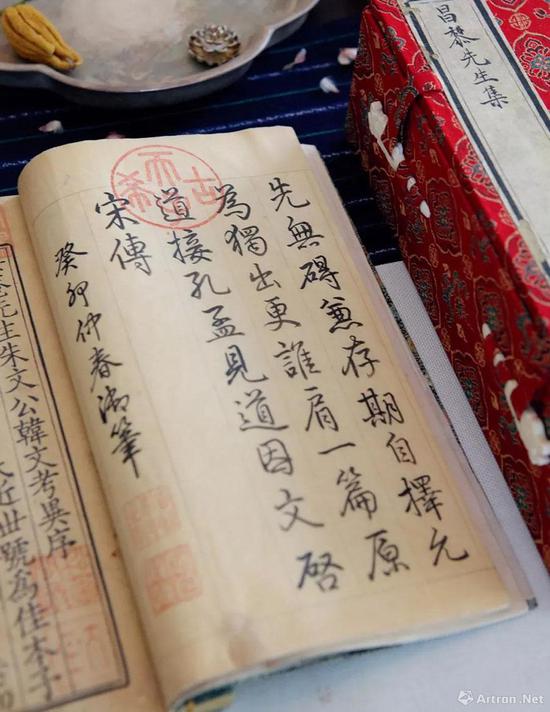 昌黎先生集
古希天
先無碍兼存期自擇允
為獨出更誰肩一篇原
道接孔孟見道因文啓
宋傳
癸卯仲春御筆
先生朱文公韓文考異序
近世號為佳本予
Artron.Net